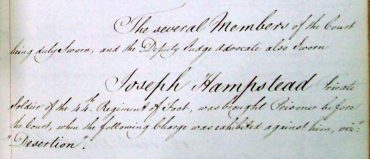 The several Members of the Court
being duly Sworn, and the Deputy Judge Advocate also Sworn
Joseph Hampstead Private
Soldier of the 44th Regiment of Foot, was brought Prisoner before
the Court, when the following Charge was exhibited against him, viz:
"Desertion".